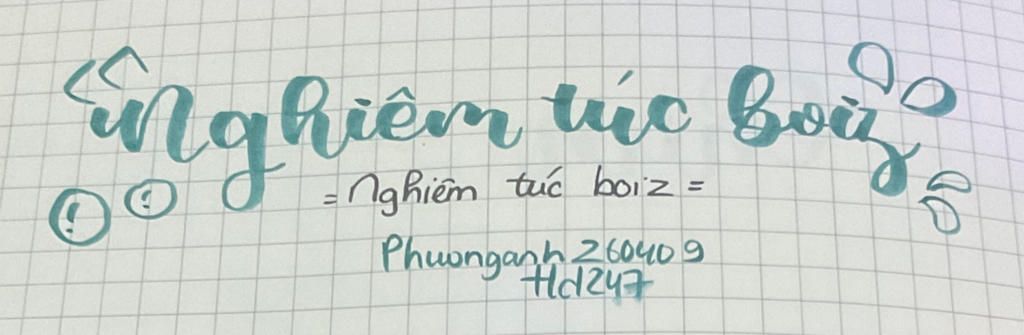 Nghiêm túc boiz
= Nghiêm túc boiz =
Phuonganh260409
Hd247